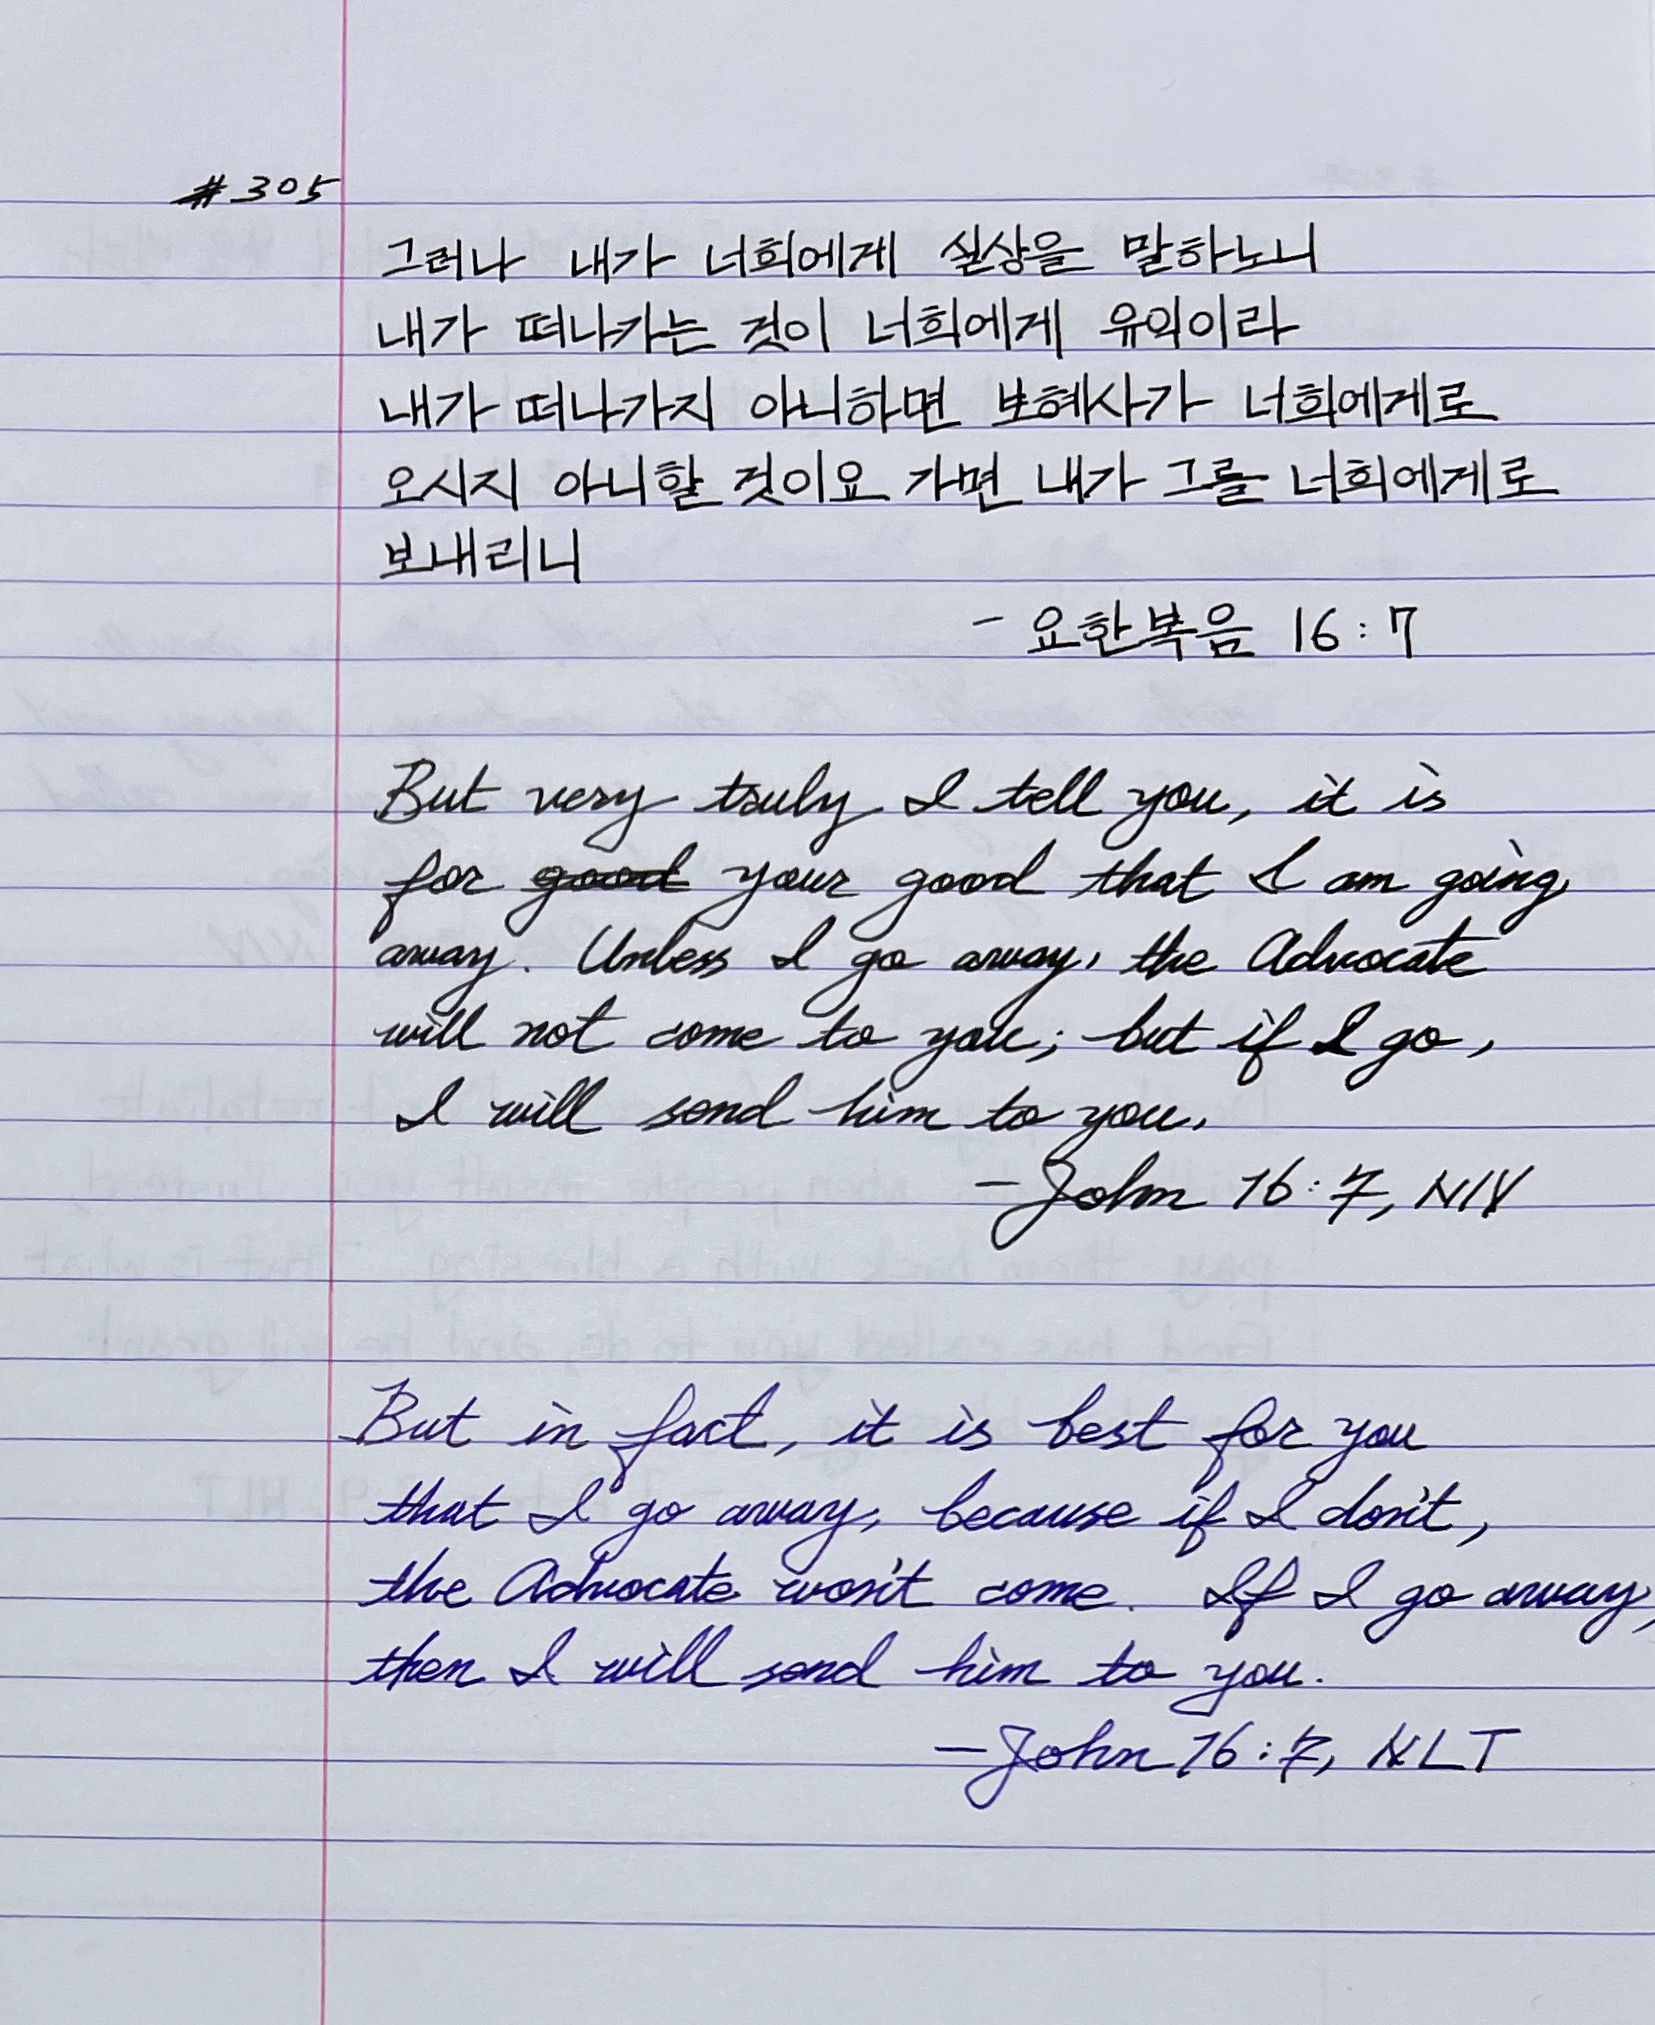 #305
그러나 내가 너희에게 실상을 말하노니
내가 떠나가는 것이 너희에게 유익이라
내가 떠나가지 아니하면 보혜사가 너희에게로
오시지 아니할 것이요 가면 내가 그를 너희에게로
보내리니
- 요한복음 16:7
But very truly I tell you, it is
for good your good that I am going
away. Unless I go away, the Advocate
will not come to you; but if I go,
I will send him to you.
- John 16:7, NIV
But in fact, it is best for you
that I go away, because if I don't,
the Advocate won't come. If I go away,
then I will send him to you.
- John 16:7, NLT